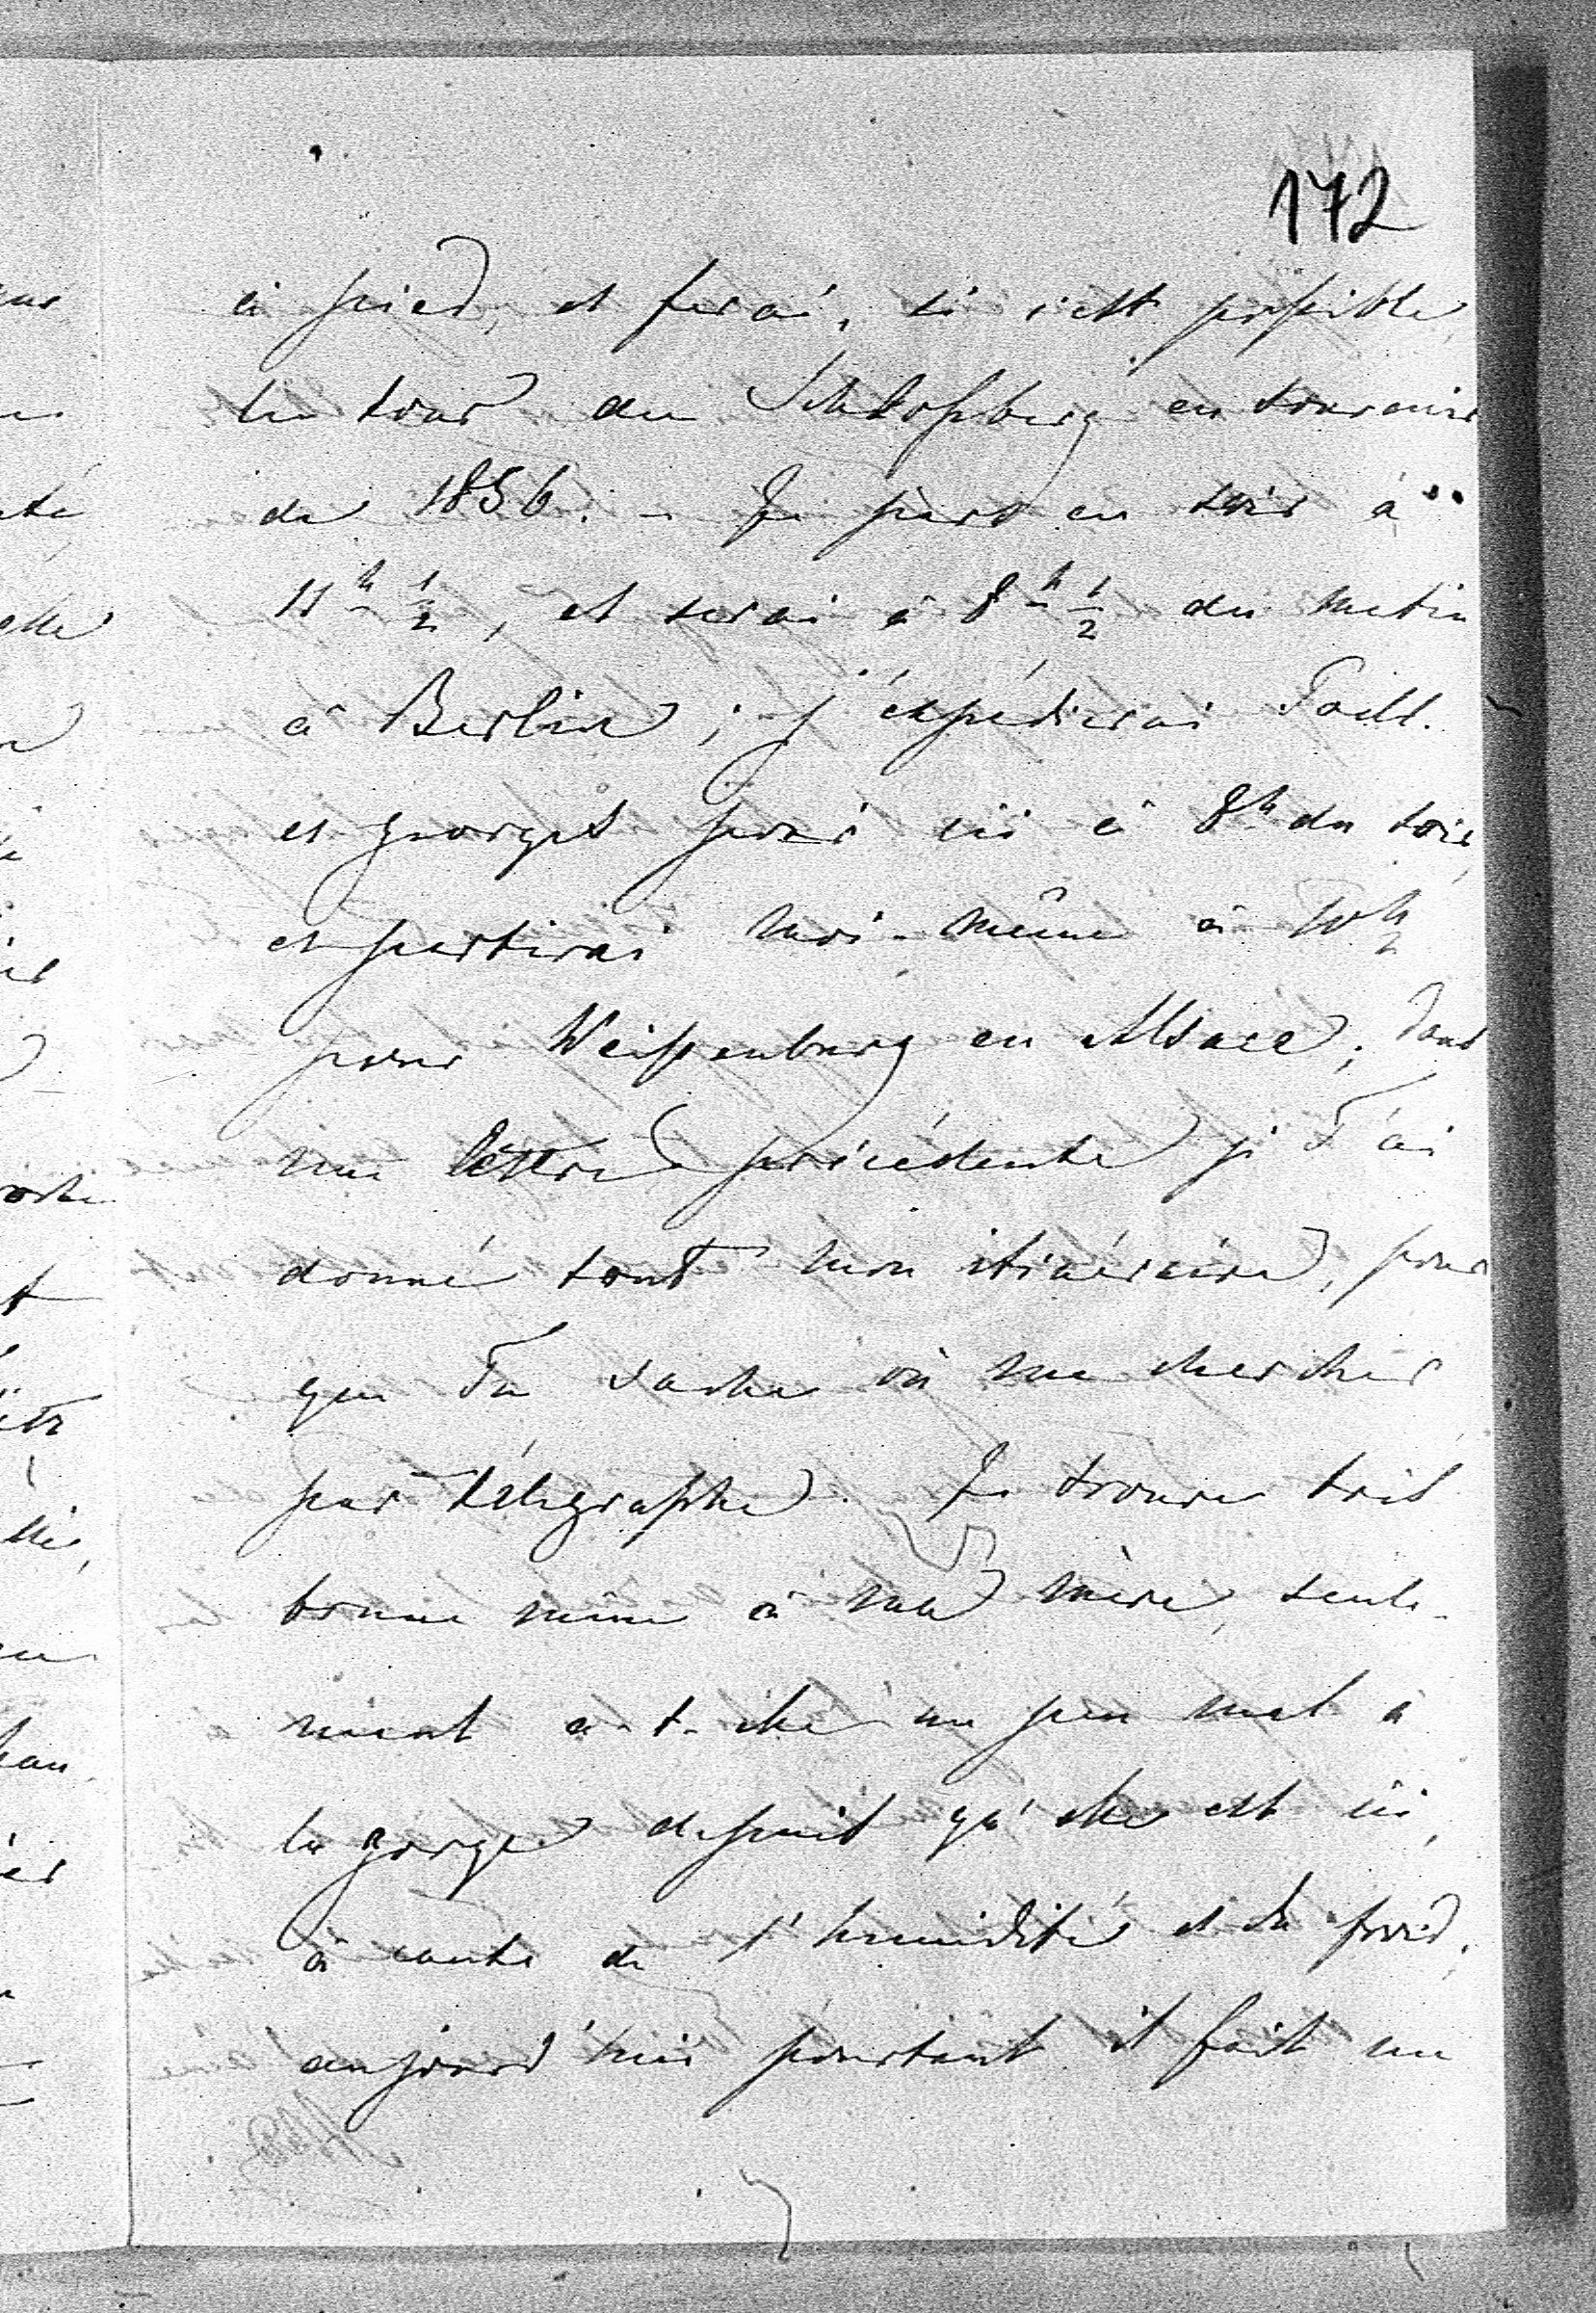 172
à pied, et ferai, si c'est possible,
le tour du Schloßberg en souvenir
de 1856. – Je pars ce soir à
11h 1/2, et serai à 8h 1/2 du matin
à Berlin; j'expédierai
et Georges pour ici à 8h du soir,
et partirai moi-même à
pour Weißenburg en Alsace; dans
ma lettre précédente je T'ai
donné tout mon itinéraire, pour
que Tu sache où me chercher
par télégraphe. Je trouve très
bonne mine à ma mère, seule-
ment a-t-elle un peu mal à
la gorge depuis qu'elle est ici,
à cause de l'humidité et du froid;
aujourd'hui pourtant il fait un